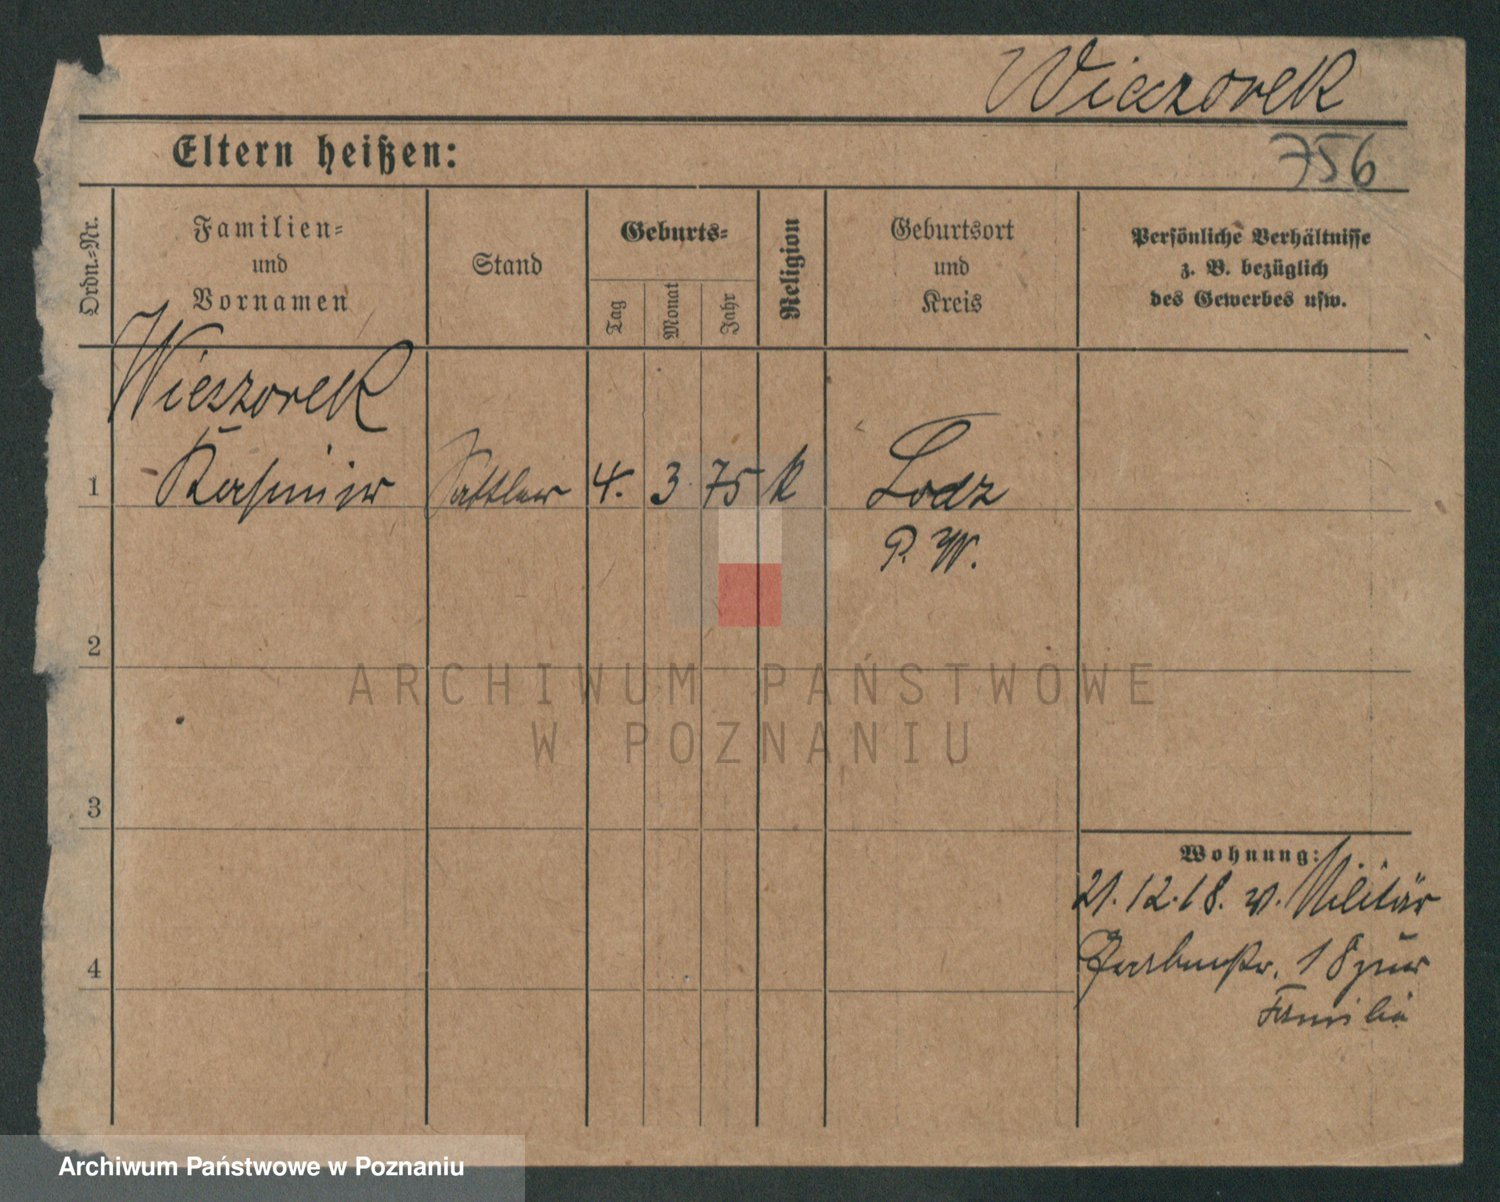 Wieczorek
Eltern heißen:
756
Ordn.-Nr.
Familien-
und
Vornamen
Stand
Geburts-
Tag
Monat
Jahr
Religion
Geburtsort
und
Kreis
Persönliche Verhältnisse
z. B. bezüglich
des Gewerbes usw.
Wieszorek
1 Kasimier Sattler 4. 3 75 k Lodz
P. W.
2
3
4
Wohnung:
21.12.18. v. Militär
18 zur
Familie
ARCHIWUM PAŃSTWOWE
W POZNANIU
Archiwum Państwowe w Poznaniu